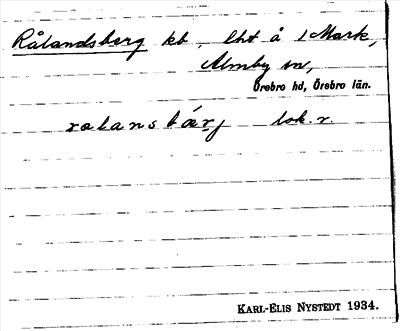 Rålandsberg kb, lht å 1 Mark,
Almby sn,
Örebro hd, Örebro län.
rælansbǽrj lok. v.
KARL-ELIS NYSTEDT 1934.